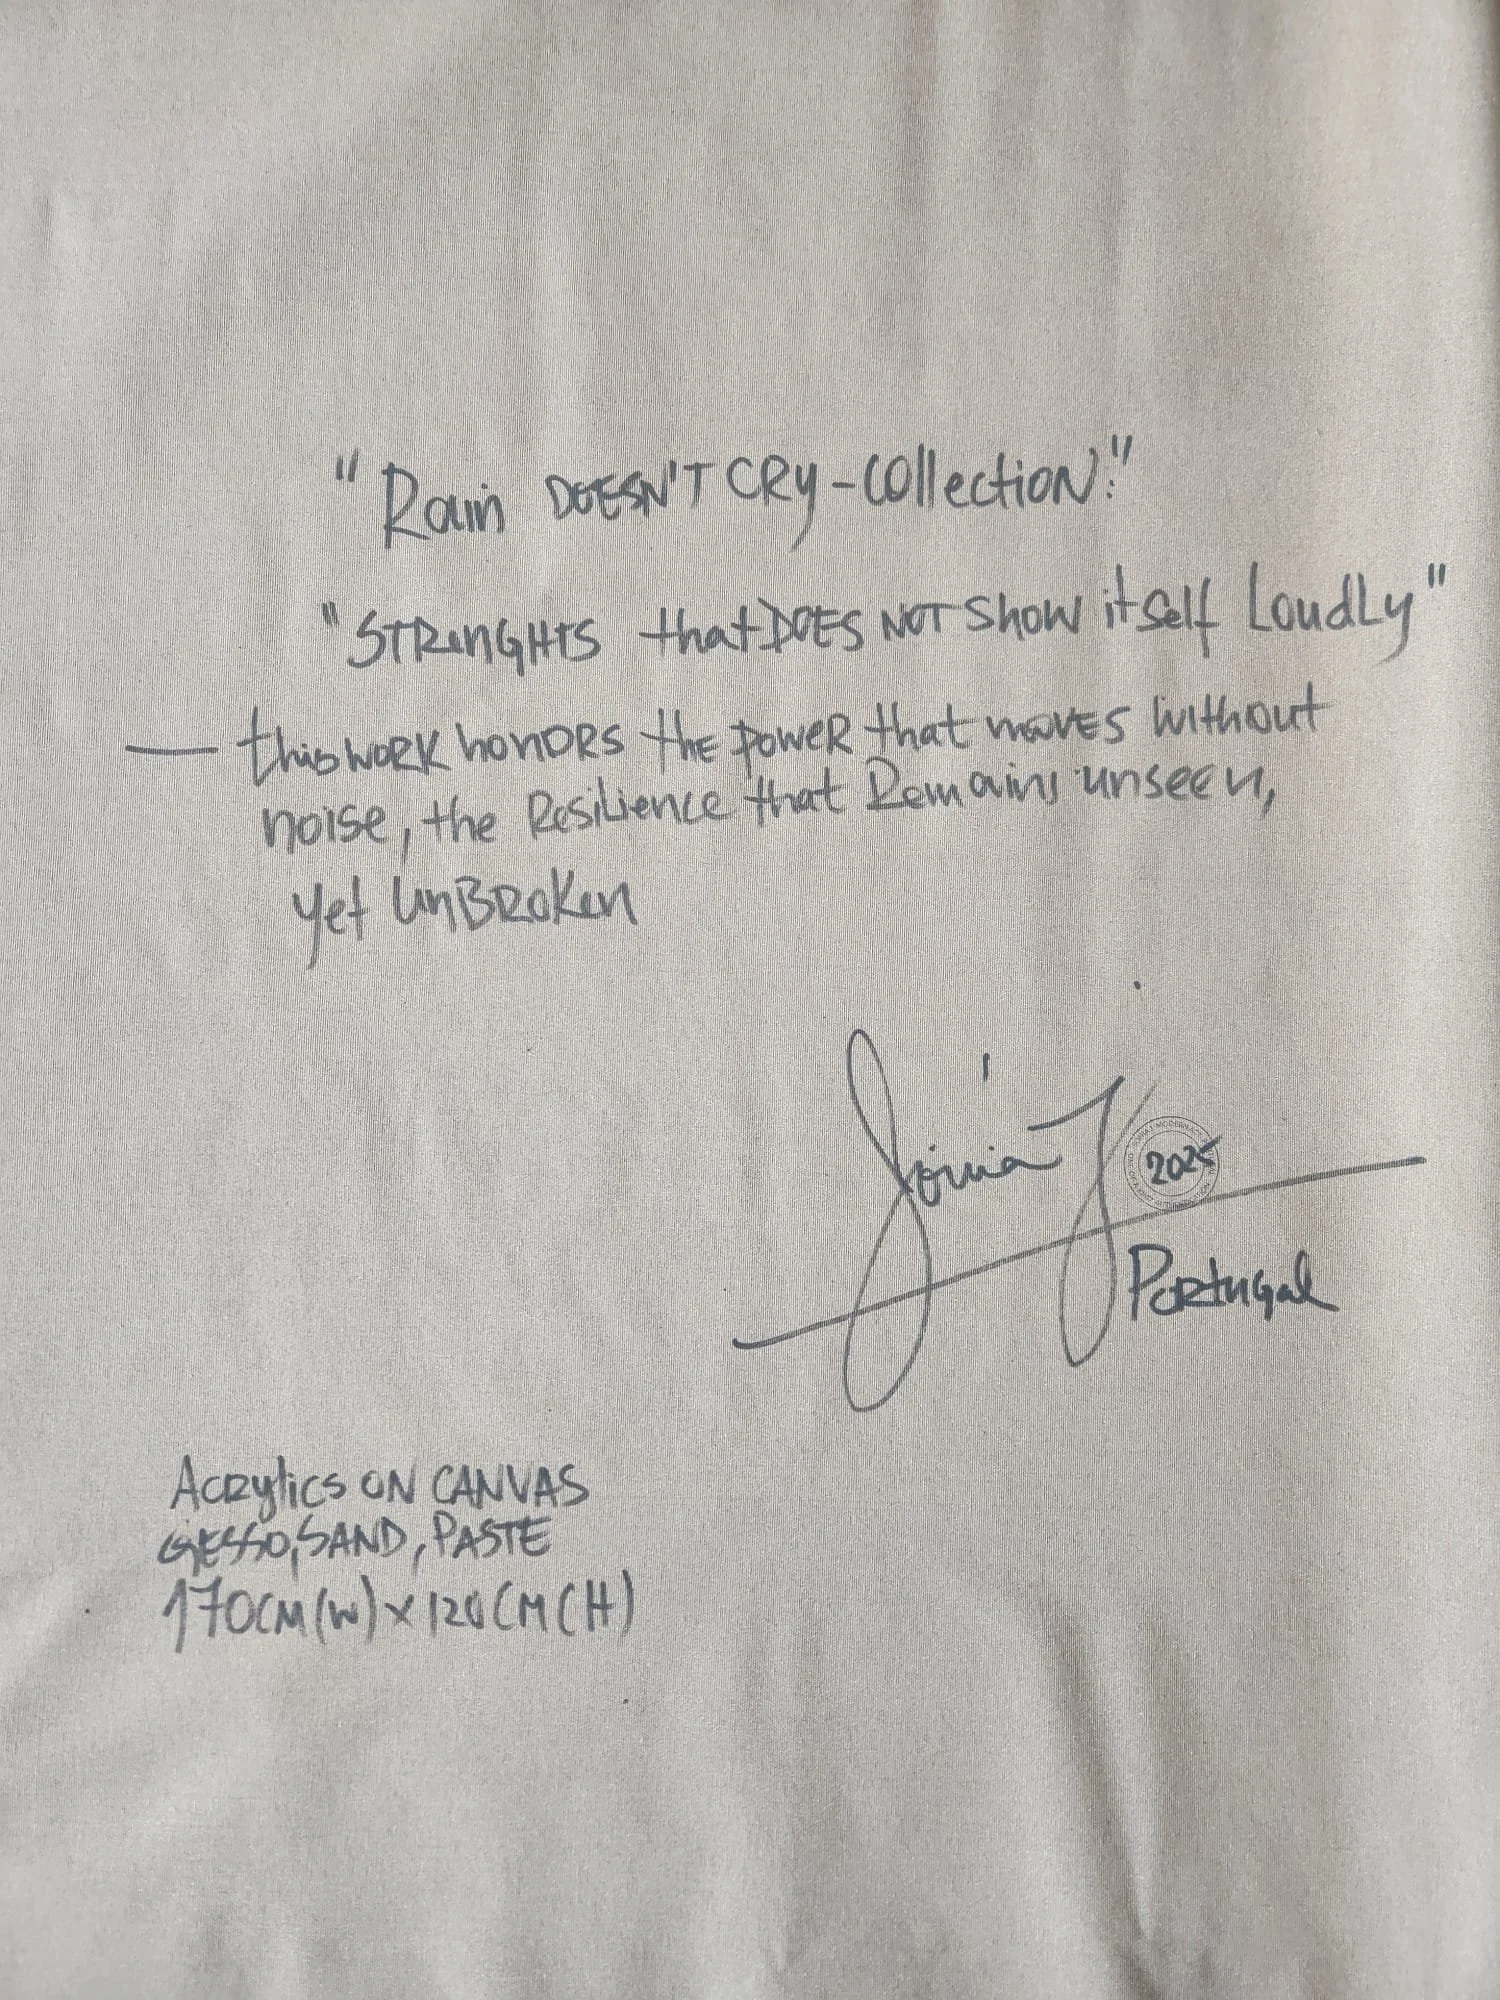 "Rain DOESN'T CRY-COllection."
"STRENGHTS that DOES NOT Show itself LoudLy"
— this WORK honORS the power that moves without
noise, the Resilience that Remains unseen,
yet unBRoken
Sónia J
2025
Portugal
Acrylics ON CANVAS
GESSO, SAND, PASTE
170CM(W) x 120CM(H)